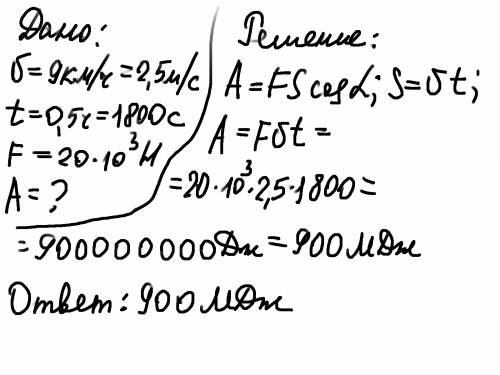 Дано:
υ = 9км/ч = 2,5м/с
t = 0,5ч = 1800с
F = 20·10³Н
A = ?
Решение:
A = FS cosα; S = υt;
A = Fυt =
= 20·10³·2,5·1800 =
= 900000000Дж = 900МДж
Ответ: 900МДж